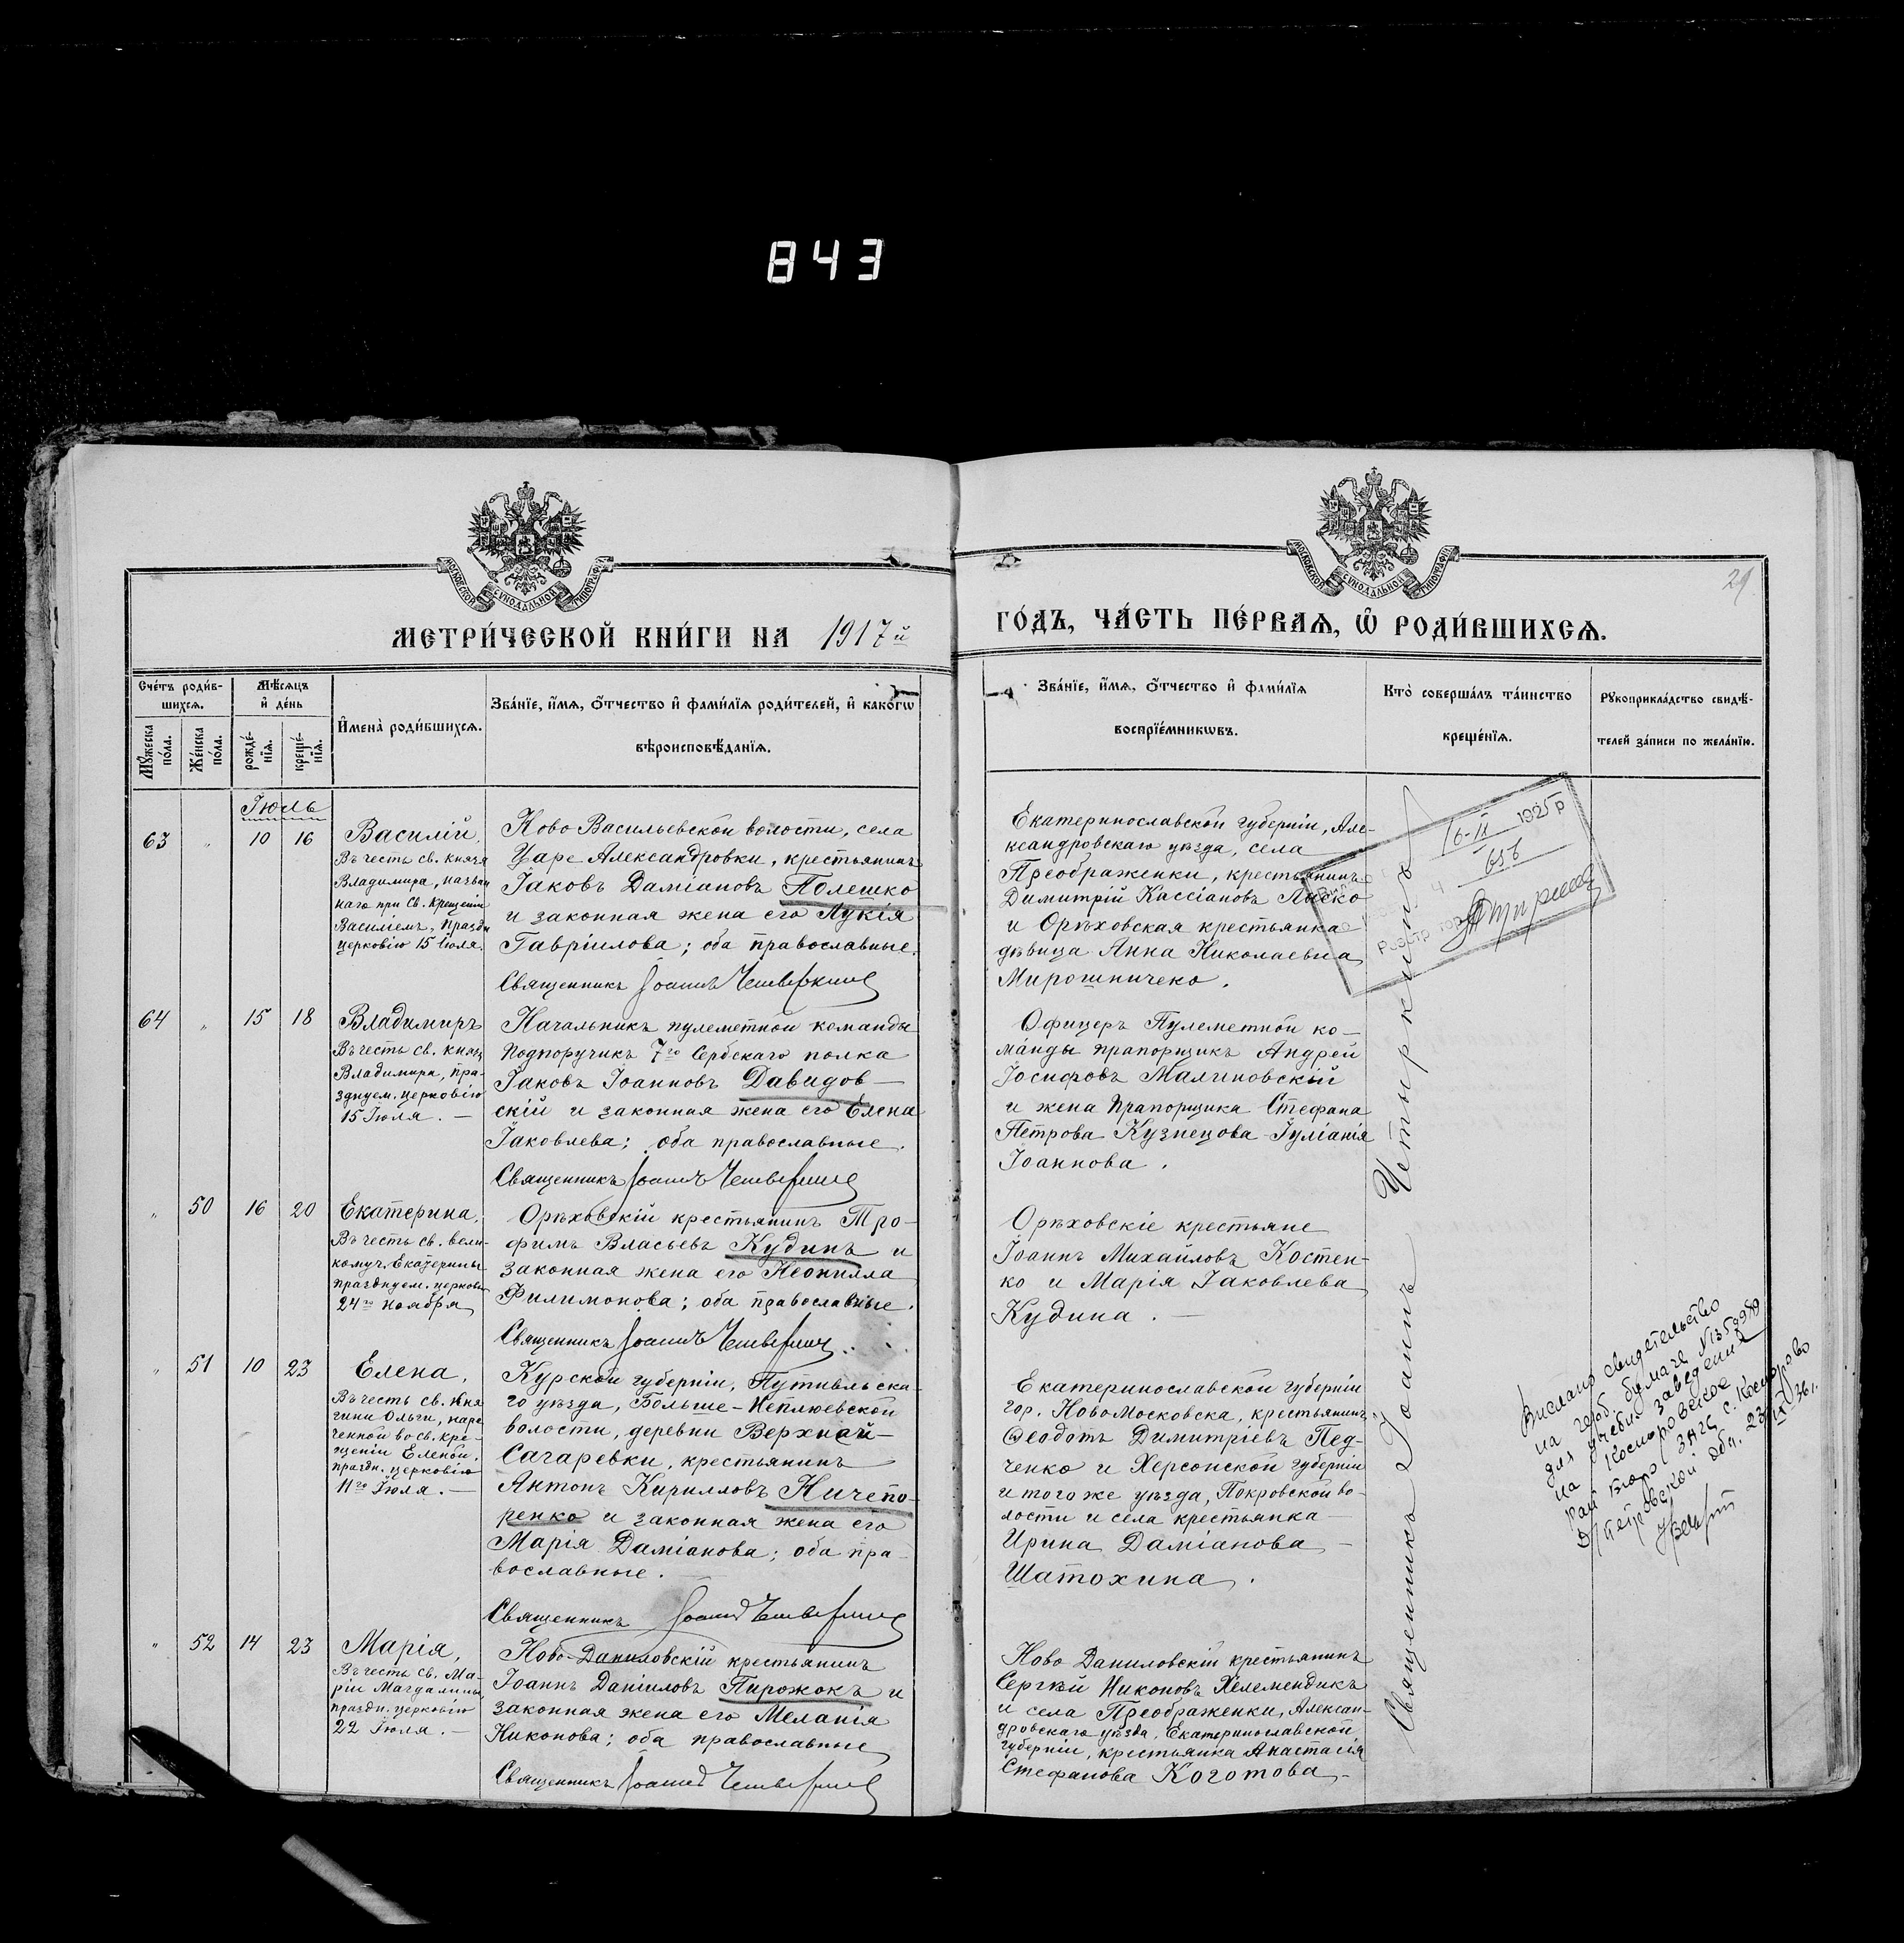 843
МОСКОВСКОЙ СѴНОДАЛЬНОЙ ТИПОГРАФІИ
МОСКОВСКОЙ СѴНОДАЛЬНОЙ ТИПОГРАФІИ
29
МЕТРИ́ЧЕСКОЙ КНИ́ГИ НА 1917й
ГО́ДЪ, ЧА́СТЬ ПЕ́РВАѦ, Ѽ РОДИ́ВШИХСѦ.
Сче́тъ роди́в-
шихсѧ.
Мѣ́сѧцъ
и҆ де́нь
Мꙋ́жеска
по́ла.
Же́нска
по́ла.
рожде́-
нїѧ.
креще́-
нїѧ.
И҆мена̀ роди́вшихсѧ.
Зва́нїе, и҆́мѧ, ѻ҆́тчество и҆ фамѝлїѧ роди́телей, и҆ како́гѡ
вѣроисповѣ́данїѧ.
Зва́нїе, и҆́мѧ, ѻ҆́тчество и҆ фамѝлїѧ
воспрїе́мникѡвъ.
Кто̀ соверша́лъ та́инство
креще́нїѧ.
Рꙋкоприкла́дство свидѣ́-
телей за́писи по жела́нїю.
Іюль
63 " 10 16
Василій,
Въ честь св. князя
Владимира, назван
наго при Св. Крещеніи
Василіемъ, праздн
церковію 15 Іюля.
Ново Васильевской волости, села
Царе Александровки, крестьянинъ
Іаковъ Даміановъ Полешко
и законная жена его Лукія
Гавріилова; оба православные.
Священникъ Іоаннъ Четыркинъ
Екатеринославской губерніи, Але-
ксандровскаго уѣзда, села
Преображенки, крестьянинъ
Димитрій Кассіановъ Лыско
и Орѣховская крестьянка
дѣвица Анна Николаевна
Мирошниченко.
16-II 1925 р
656
64 " 15 18
Владимиръ
Въ честь св. князя
Владимира, пра-
зднуем. церковію
15 Іюля. —
Начальникъ пулеметной команды
Подпоручикъ 7го Сербскаго полка
Іаковъ Іоанновъ Давидов—
скій и законная жена его Елена
Іаковлева; оба православные.
Священникъ Іоаннъ Четыркинъ
Офицеръ Пулеметной ко—
манды прапорщикъ Андрей
Іосифовъ Малиновскій
и жена Прапорщика Стефана
Петрова Кузнецова Іуліанія
Іоаннова.
" 50 16 20
Екатерина,
Въ честь св. вели-
комуч. Екатерины
празднуем. церковію
24го ноября
Орѣховскій крестьянинъ Тро-
фимъ Власьевъ Кудинъ и
законная жена его Неонилла
Филимонова; оба православные.
Священникъ Іоаннъ Четыркинъ
Орѣховскіе крестьяне
Іоаннъ Михайловъ Костен-
ко и Марія Іаковлева
Кудина. —
" 51 10 23
Елена,
Въ честь св. кня
гини Ольги, наре
ченной во св. кре-
щеніи Еленой,
праздн. церковію
11го Іюля. —
Курской губерніи, Путивльска-
го уѣзда, Больше-Неплюевской
волости, деревни Верхней—
Сагаревки, крестьянинъ
Антонъ Кирилловъ Ничепо-
ренко и законная жена его
Марія Даміанова; оба пра-
вославные. —
Священникъ Іоаннъ Четыркинъ
Екатеринославской губерніи
гор. НовоМосковска, крестьянинъ
Ѳеодотъ Димитріевъ Пед-
ченко и Херсонской губерніи
и того же уѣзда, Покровской во-
лости и села крестьянка —
Ирина Даміанова —
Шатохина.
Выслано свидетельство
на герб. бумаге N 1353959
для учебн. заведений
на Косторовское
рай бюро ЗАГС с. Косторово
Д/Петровской обл. 23/IX 36 г.
" 52 14 23
Марія,
Въ честь св. Ма-
ріи Магдалины,
праздн. церковію
22 Іюля. —
Ново-Даниловскій крестьянинъ
Іоаннъ Даніиловъ Пирожокъ и
законная жена его Меланія
Никонова; оба православные
Священникъ Іоаннъ Четыркинъ
Ново Даниловскій крестьянинъ
Сергѣй Никоновъ Хелемендикъ
и села Преображенки, Алексан-
дровскаго уѣзда, Екатеринославской
губерніи, крестьянка Анастасія
Стефанова Коготова. —
Священникъ Іоаннъ Четыркинъ